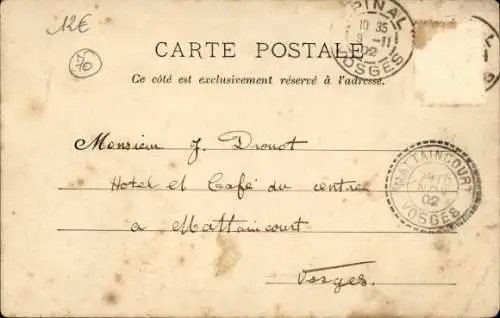 12€
70
EPINAL
10 35
9 -11
02
VOSGES
CARTE POSTALE
Ce côté est exclusivement réservé à l'adresse.
Monsieur J. Drouot
Hotel et Café du centre
a Mattaincourt
Vosges.
MATTAINCOURT
NOV
02
VOSGES